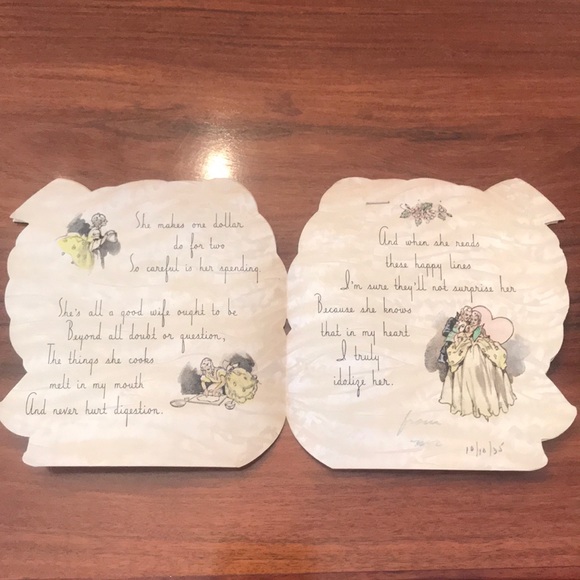 She makes one dollar
do for two
So careful is her spending.
She's all a good wife ought to be
Beyond all doubt or question,
The things she cooks
melt in my mouth
And never hurt digestion.
And when she reads
these happy lines
I'm sure they'll not surprise her
Because she knows
that in my heart
I truly
idalize her.
from